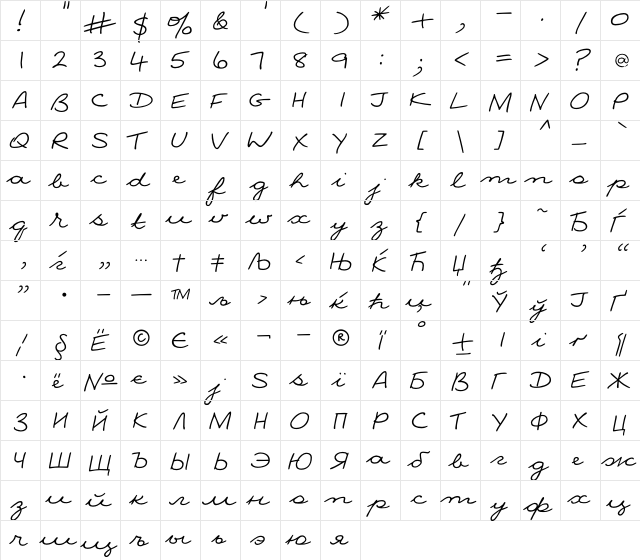 ! " # $ % & ' ( ) * + , – · / 0
1 2 3 4 5 6 7 8 9 : ; < = > ? @
A B C D E F G H I J K L M N O P
Q R S T U V W X Y Z [ \ ] ^ _ `
a b c d e f g h i j k l m n o p
q r s t u v w x y z { / } ~ Ђ Ѓ
‚ ѓ „ … † ‡ Љ ‹ Њ Ќ Ћ Џ ђ ‘ ’ “
” • – — ™ љ › њ ќ ћ џ Ў ў Ј Ґ
¦ § Ё © Є « ¬ – ® Ї ° ± І і ґ ¶
· ё № є » ј Ѕ ѕ ї А Б В Г Д Е Ж
З И Й К Л М Н О П Р С Т У Ф Х Ц
Ч Ш Щ Ъ Ы Ь Э Ю Я а б в г д е ж
з и й к л м н о п р с т у ф х ц
ч ш щ ъ ы ь э ю я